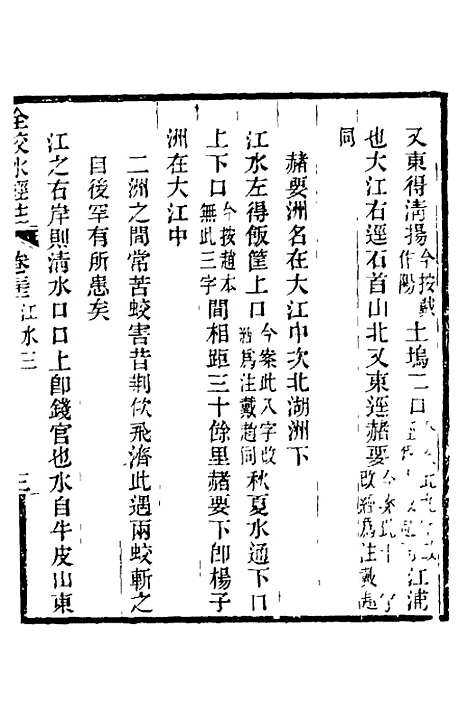 又東得清揚今按戴作陽土塢二口江浦
也大江右逕石首山北又東逕赭要今案此改經爲注戴趙
同
赭要洲名在大江中次北湖洲下
江水左得飯筐上口今案此八字改經爲注戴趙同秋夏水通下口
上下口今按趙本無此三字間相距三十餘里赭要下卽楊子
洲在大江中
二洲之間常苦蛟害昔荆佽飛濟此遇兩蛟斬之
自後罕有所患矣
江之右岸則清水口口上卽錢官也水自牛皮山東
全校水經注 卷三十五 江水三 三